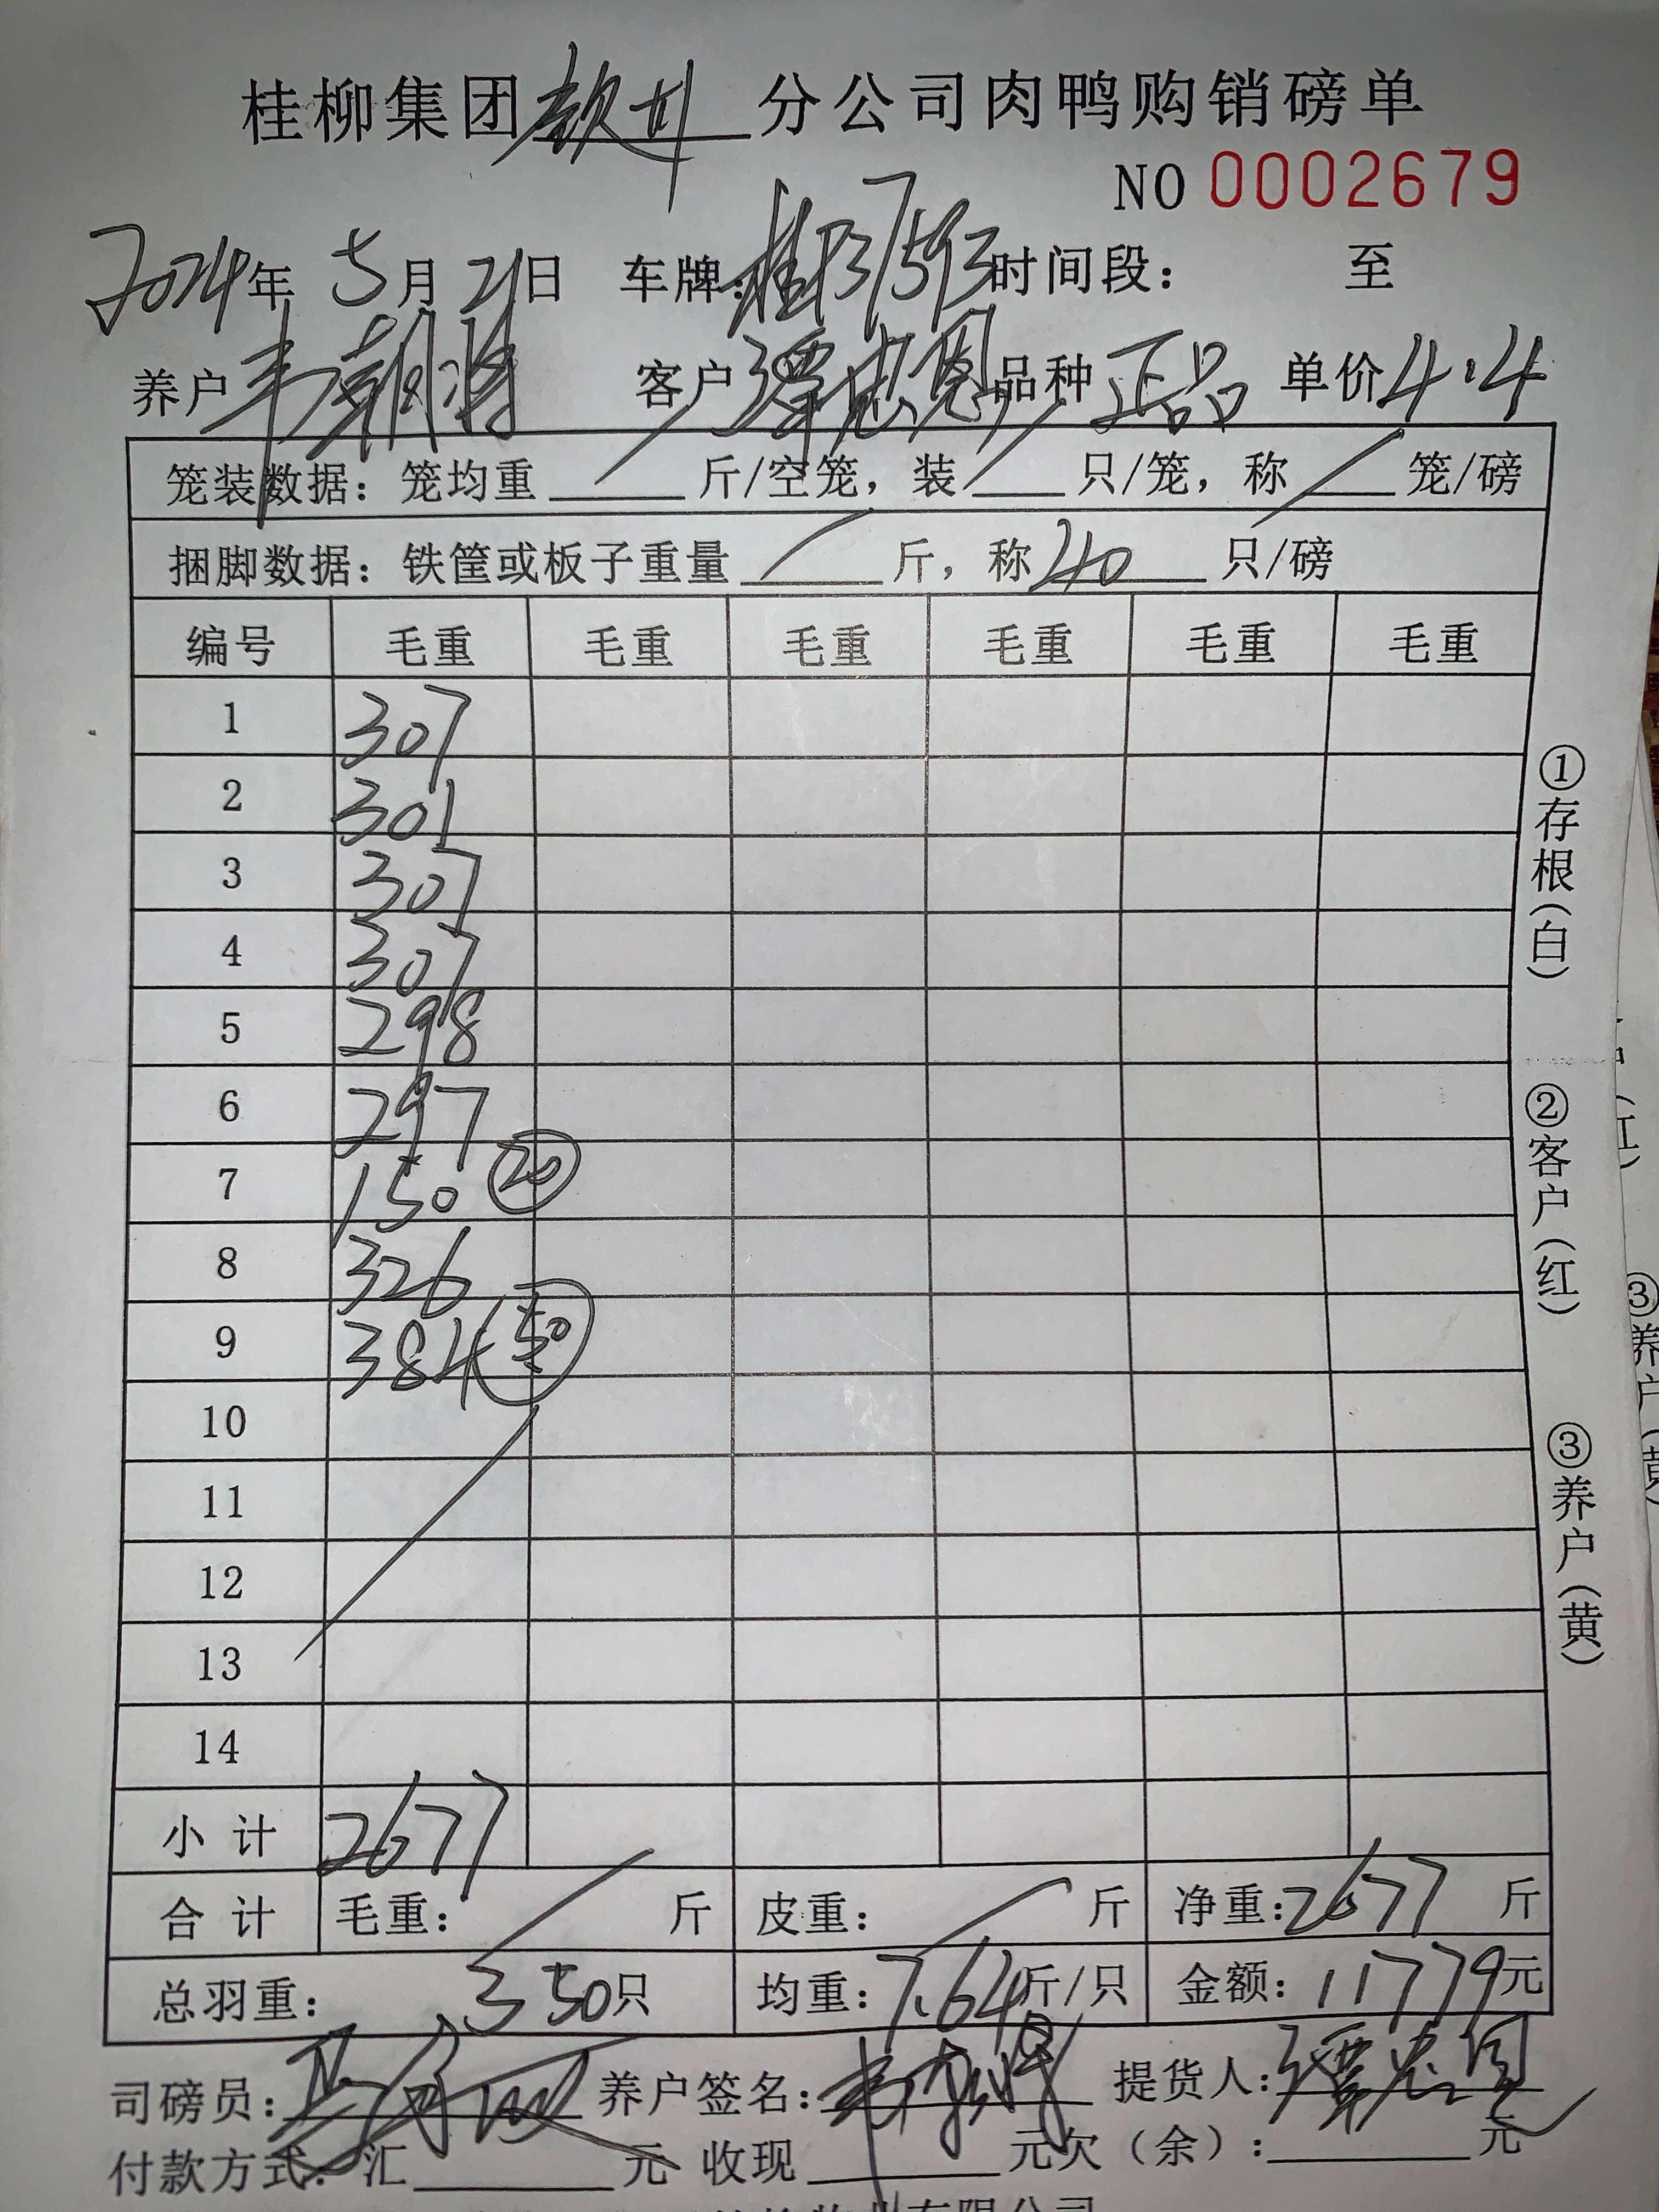 桂柳集团钦州分公司肉鸭购销磅单
NO 0002679
2024年 5月 21日 车牌: 桂P37593 时间段: 至
养户 韦朝将 客户 谭忠恩 品种 正品 单价 4.4
笼装数据: 笼均重 / 斤/空笼, 装 / 只/笼, 称 / 笼/磅
捆脚数据: 铁筐或板子重量 / 斤, 称 40 只/磅
编号 毛重 毛重 毛重 毛重 毛重 毛重
1 307
2 301
3 307
4 307
5 298
6 297
7 150 20
8 326
9 384 50
10
11
12
13
14
小计 2677
合计 毛重: / 斤 皮重: / 斤 净重: 2677 斤
总羽重: 350只 均重: 7.64斤/只 金额: 11779元
司磅员: 养户签名: 提货人: 谭忠恩
付款方式: 汇 元 收现 元 欠(余): 元
①存根(白)
②客户(红)
③养户(黄)
③养户(黄)